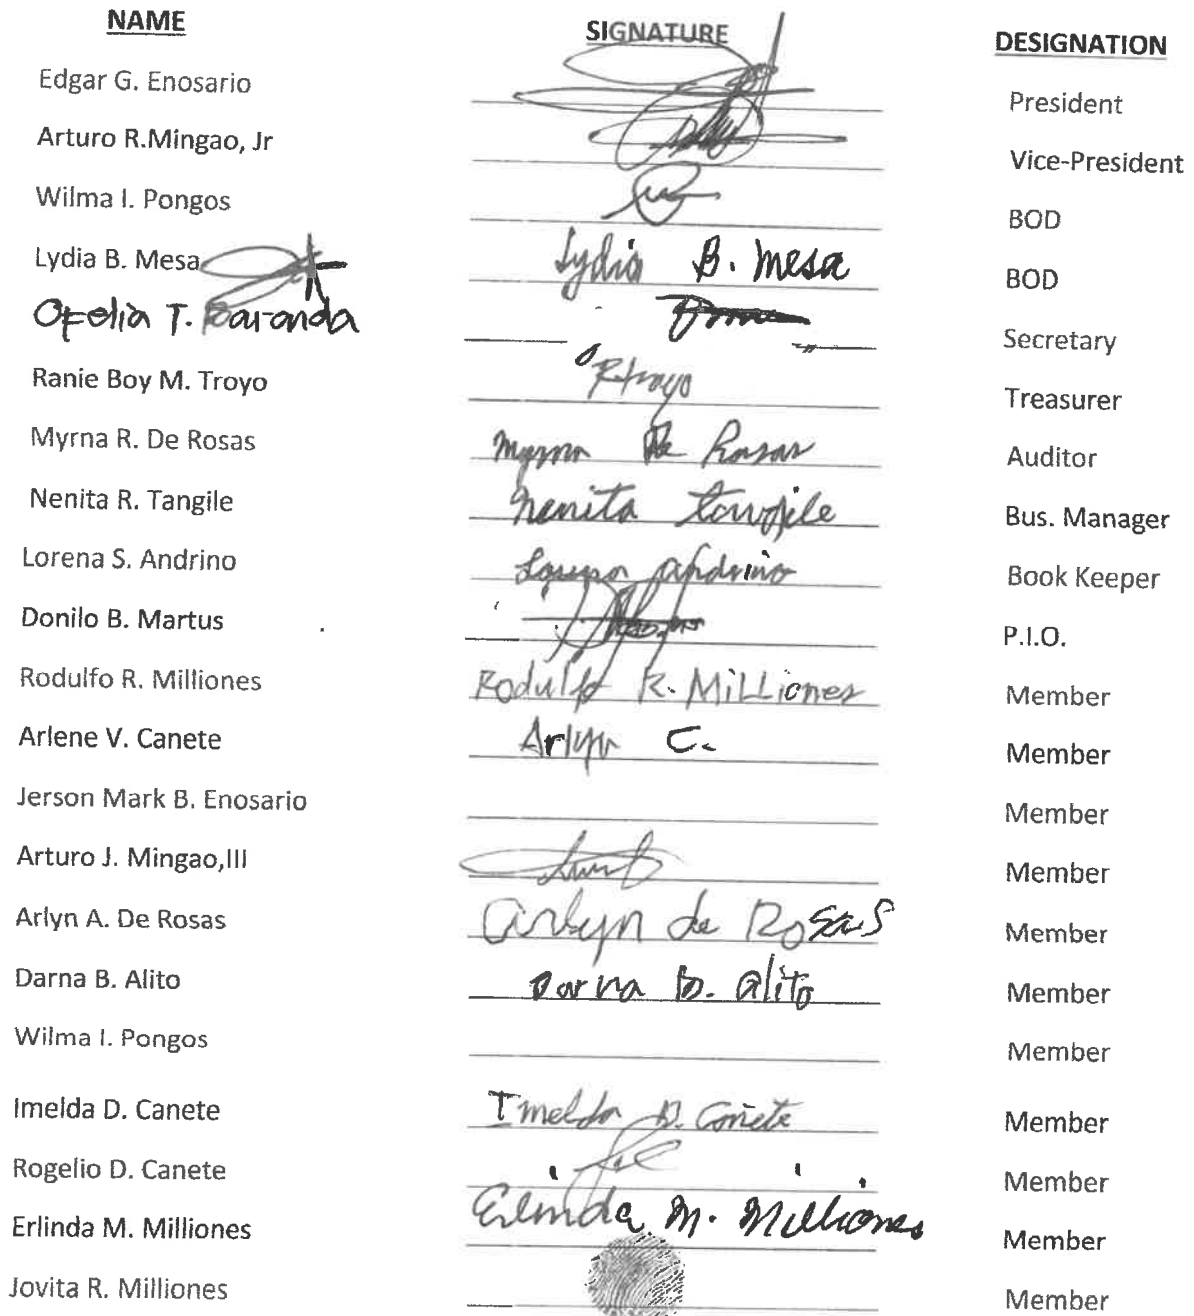 NAME SIGNATURE DESIGNATION
Edgar G. Enosario President
Arturo R.Mingao, Jr Vice-President
Wilma I. Pongos BOD
Lydia B. Mesa Lydia B. Mesa BOD
Ofelia T. Daranda Secretary
Ranie Boy M. Troyo Rtroyo Treasurer
Myrna R. De Rosas Myrna De Rosas Auditor
Nenita R. Tangile Nenita Tangile Bus. Manager
Lorena S. Andrino Lorena Andrino Book Keeper
Donilo B. Martus P.I.O.
Rodulfo R. Milliones Rodulfo R. Milliones Member
Arlene V. Canete Arlyn C. Member
Jerson Mark B. Enosario Member
Arturo J. Mingao,III Member
Arlyn A. De Rosas Arlyn de Rosas Member
Darna B. Alito Darna B. Alito Member
Wilma I. Pongos Member
Imelda D. Canete Imelda D. Cañete Member
Rogelio D. Canete Member
Erlinda M. Milliones Erlinda M. Milliones Member
Jovita R. Milliones Member